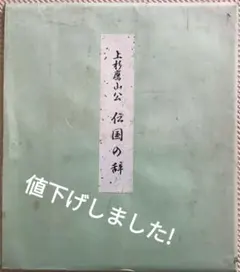 上杉鷹山公 伝国の辞
値下げしました!